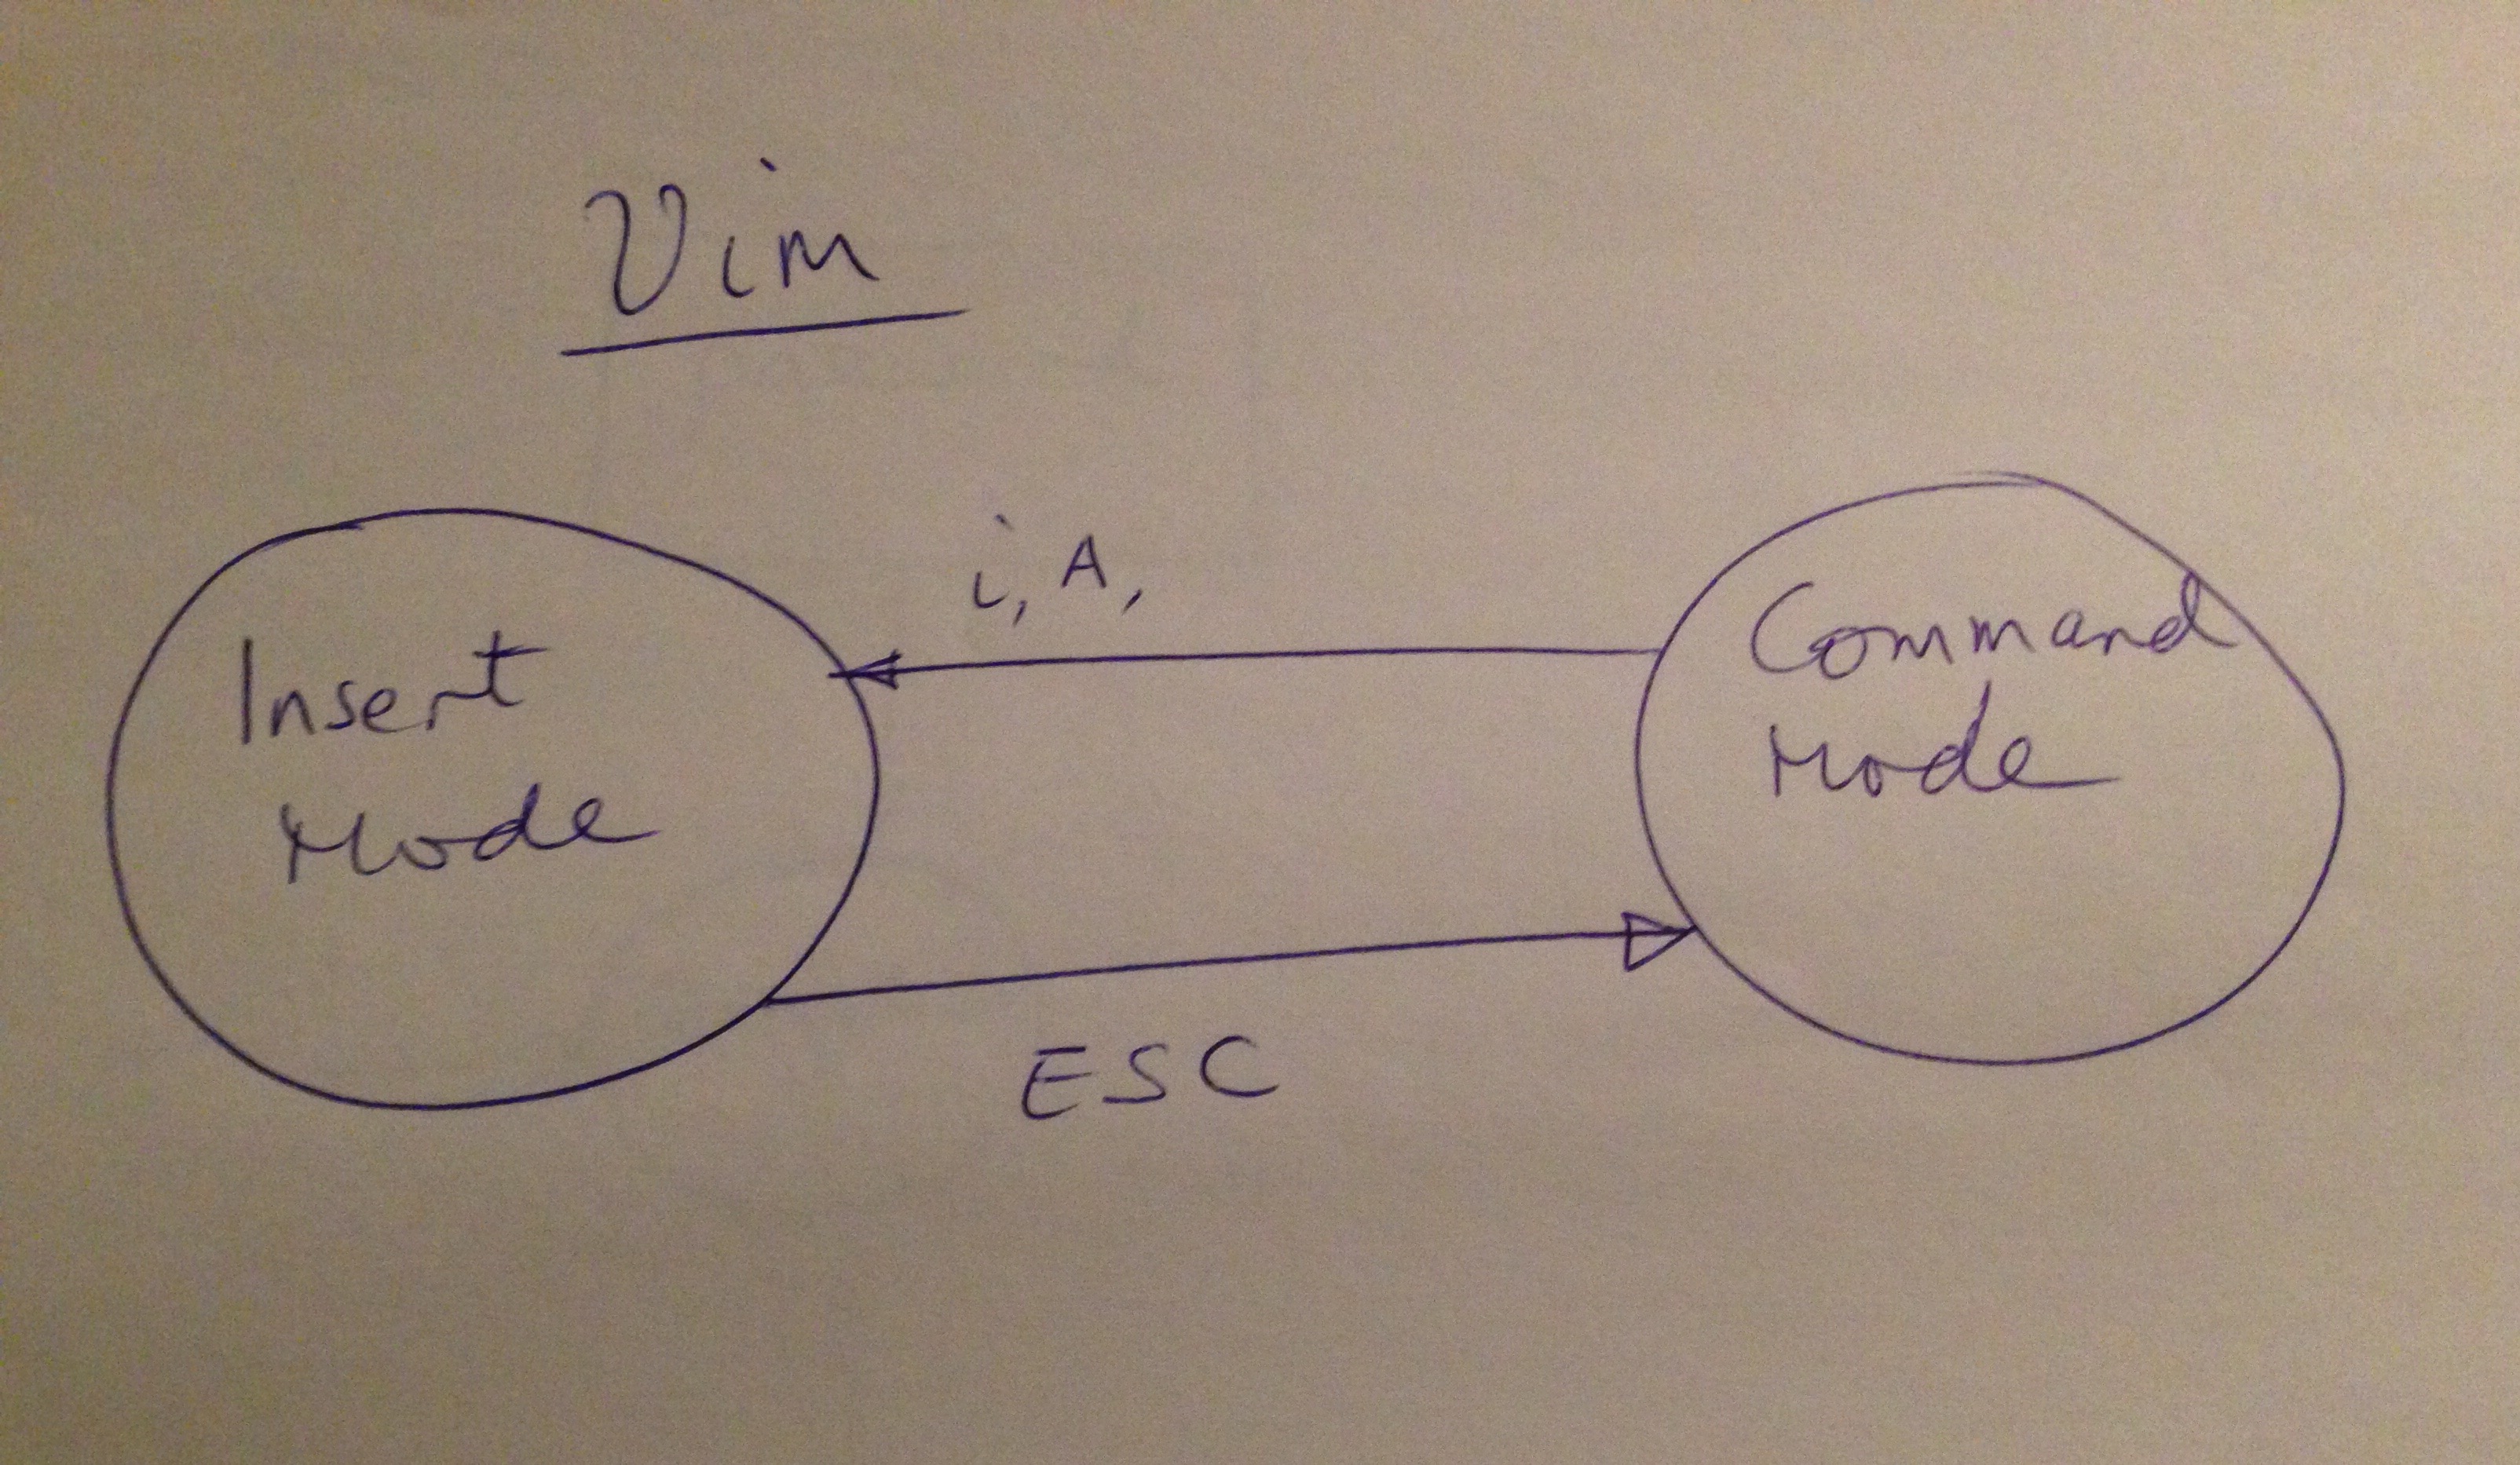 Vim
i, A,
Insert
Mode
Command
Mode
ESC